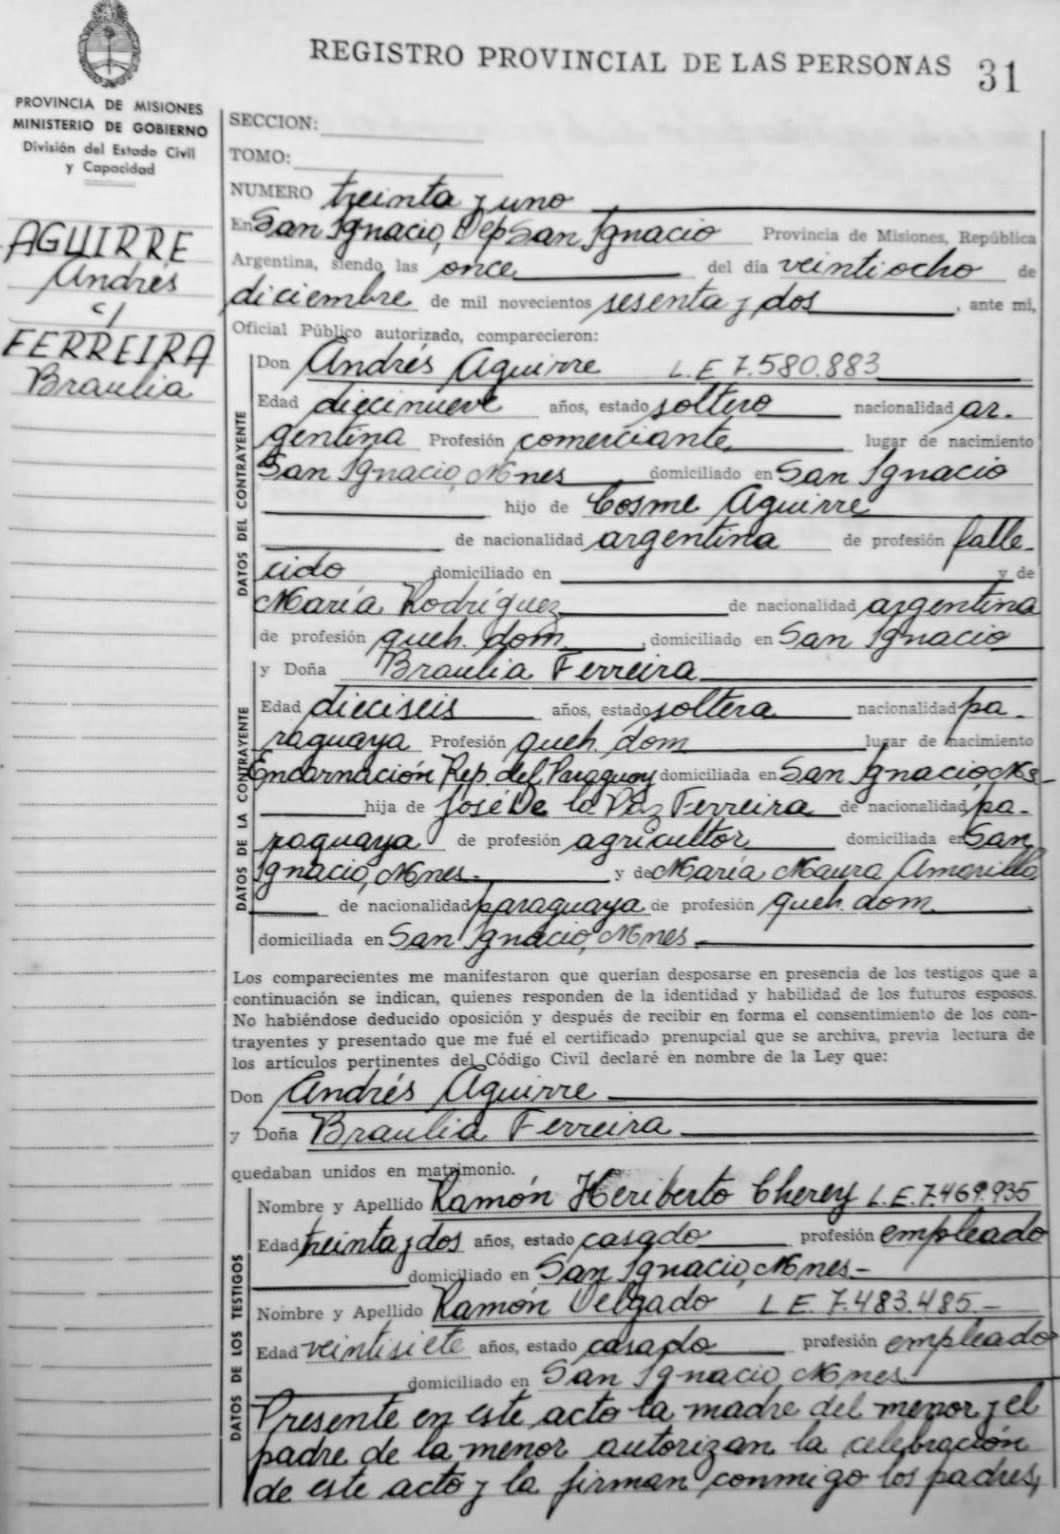 REGISTRO PROVINCIAL DE LAS PERSONAS 31
PROVINCIA DE MISIONES
MINISTERIO DE GOBIERNO
División del Estado Civil
y Capacidad
AGUIRRE
Andrés
c/
FERREIRA
Braulia
SECCION:
TOMO:
NUMERO treinta y uno
En San Ignacio, Dep San Ignacio Provincia de Misiones, República
Argentina, siendo las once del día veintiocho de
diciembre de mil novecientos sesenta y dos, ante mi,
Oficial Público autorizado, comparecieron:
DATOS DEL CONTRAYENTE
Don Andrés Aguirre L.E 7.580.883
Edad diecinueve años, estado soltero nacionalidad ar-
gentina Profesión comerciante lugar de nacimiento
San Ignacio, Mnes domiciliado en San Ignacio
hijo de Cosme Aguirre
de nacionalidad argentina de profesión falle-
cido domiciliado en y de
María Rodríguez de nacionalidad argentina
de profesión queh. dom. domiciliado en San Ignacio
DATOS DE LA CONTRAYENTE
y Doña Braulia Ferreira
Edad dieciseis años, estado soltera nacionalidad pa-
raguaya Profesión queh. dom lugar de nacimiento
Encarnación Rep. del Paraguay domiciliada en San Ignacio, Ms-
hija de José De la Paz Ferreira de nacionalidad pa-
raguaya de profesión agricultor domiciliada en San
Ignacio, Mnes.- y de María Maura Amarilla
de nacionalidad paraguaya de profesión queh. dom.
domiciliada en San Ignacio, Mnes
Los comparecientes me manifestaron que querían desposarse en presencia de los testigos que a
continuación se indican, quienes responden de la identidad y habilidad de los futuros esposos.
No habiéndose deducido oposición y después de recibir en forma el consentimiento de los con-
trayentes y presentado que me fué el certificado prenupcial que se archiva, previa lectura de
los artículos pertinentes del Código Civil declaré en nombre de la Ley que:
Don Andrés Aguirre
y Doña Braulia Ferreira
quedaban unidos en matrimonio.
DATOS DE LOS TESTIGOS
Nombre y Apellido Ramón Heriberto Cherey L.E.7.469.935
Edad treinta y dos años, estado casado profesión empleado
domiciliado en San Ignacio, Mnes-
Nombre y Apellido Ramón Delgado L E. 7.483.485.-
Edad veintisiete años, estado casado profesión empleado
domiciliado en San Ignacio, Mnes
Presente en este acto la madre del menor y el
padre de la menor autorizan la celebración
de este acto y la firman conmigo los padres,